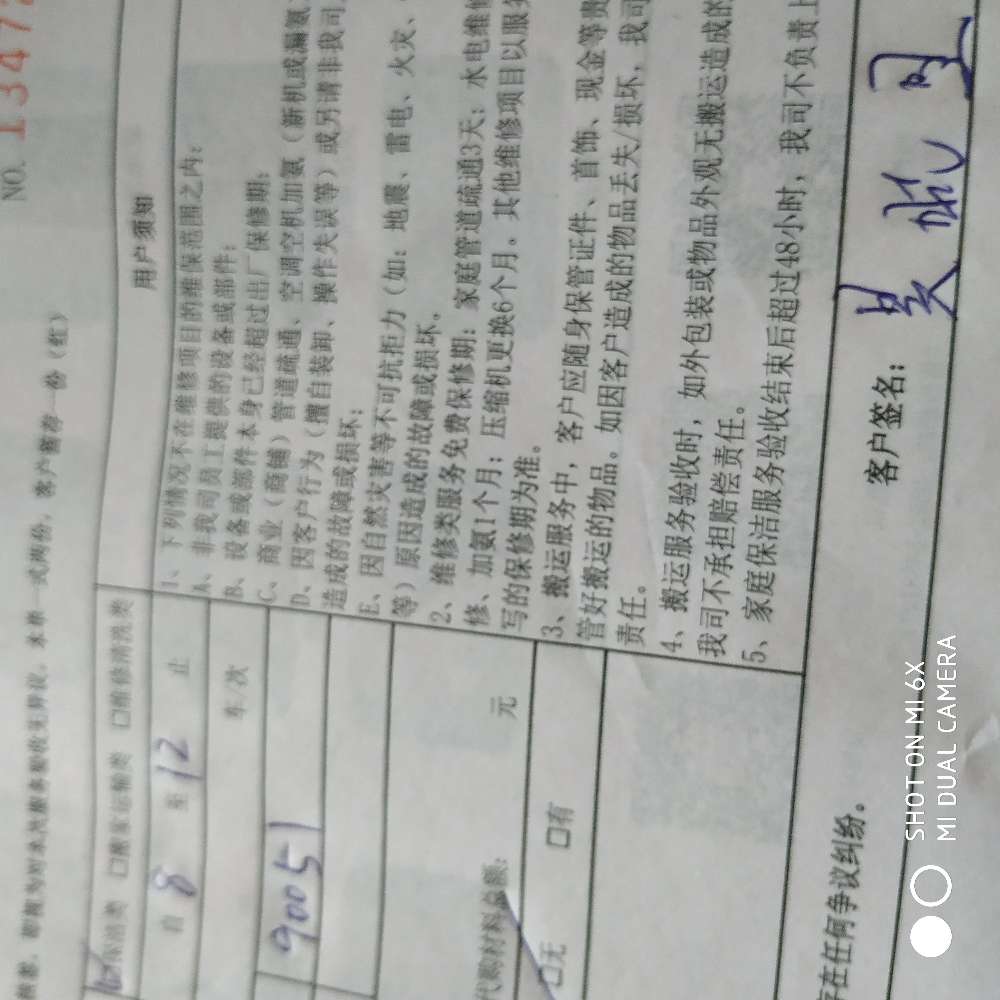 NO. 1347
即视为对本次服务验收无异议。本单一式两份，客户留存一份（红）
保洁类 □搬家运输类 □维修清洗类
自 8 至 12 止
车/次
9005
代购材料总额:
元
□无 □有
用户须知
1、下列情况不在维修项目的维保范围之内:
A、非我司员工提供的设备或部件;
B、设备或部件本身已经超过出厂保修期;
C、商业（商铺）管道疏通、空调空机加氨（新机或漏氨
D、因客户行为（擅自装卸、操作失误等）或另请非我司
造成的故障或损坏;
E、因自然灾害等不可抗拒力（如: 地震、雷电、火灾、
等）原因造成的故障或损坏。
2、维修类服务免费保修期: 家庭管道疏通3天; 水电维修
修、加氨1个月; 压缩机更换6个月。其他维修项目以服务
写的保修期为准。
3、搬运服务中，客户应随身保管证件、首饰、现金等贵
管好搬运的物品。如因客户造成的物品丢失/损坏，我司
责任。
4、搬运服务验收时，如外包装或物品外观无搬运造成的
我司不承担赔偿责任。
5、家庭保洁服务验收结束后超过48小时，我司不负责上
存在任何争议纠纷。
客户签名: 吴
SHOT ON MI 6X
MI DUAL CAMERA